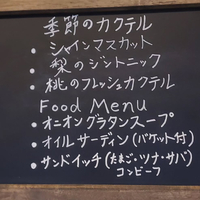 季節のカクテル
• シャインマスカット
• 梨のジントニック
• 桃のフレッシュカクテル
Food Menu
• オニオングラタンスープ
• オイルサーディン(バケット付)
• サンドイッチ(たまご・ツナ・サバ)
コンビーフ